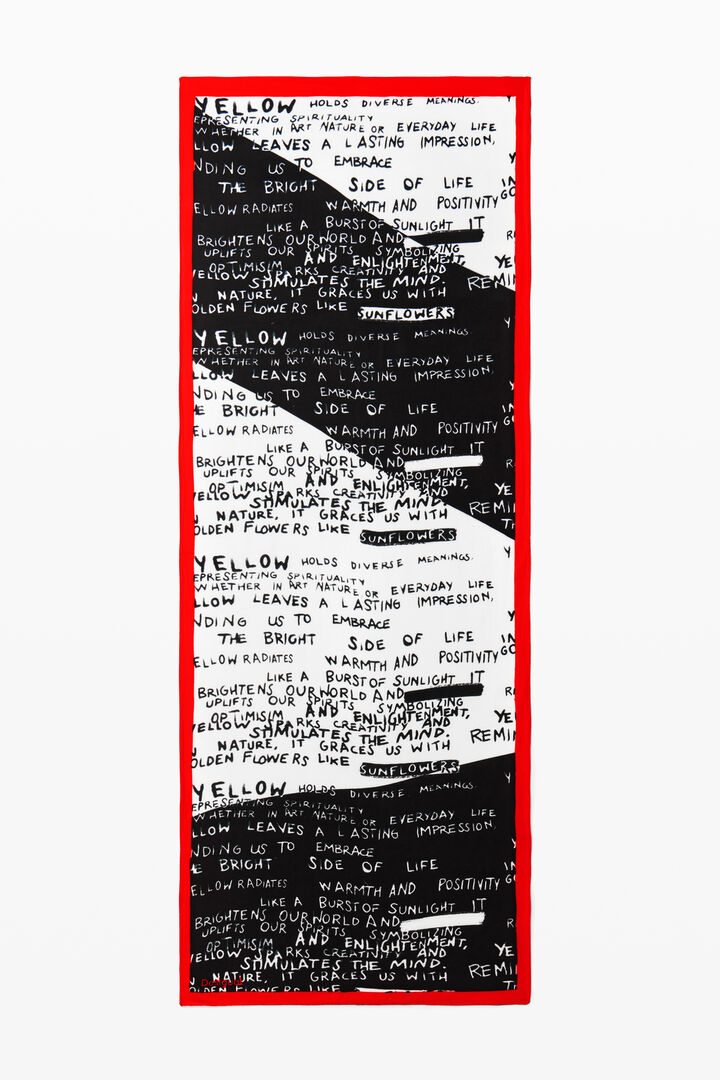 YELLOW HOLDS DIVERSE MEANINGS.
EPRESENTING SPIRITUALITY
WHETHER IN ART NATURE OR EVERYDAY LIFE
LLOW LEAVES A LASTING IMPRESSION,
NDING US TO EMBRACE Y
THE BRIGHT SIDE OF LIFE IN
GO
ELLOW RADIATES WARMTH AND POSITIVITY
LIKE A BURST OF SUNLIGHT IT
BRIGHTENS OUR WORLD AND R
UPLIFTS OUR SPIRITS SYMBOLIZING
OPTIMISIM AND ENLIGHTENMENT, YE
YELLOW SPARKS CREATIVITY AND
STIMULATES THE MIND. REMI
NATURE, IT GRACES US WITH
OLDEN FLOWERS LIKE SUNFLOWERS
YELLOW HOLDS DIVERSE MEANINGS. Y
EPRESENTING SPIRITUALITY
WHETHER IN ART NATURE OR EVERYDAY LIFE
LLOW LEAVES A LASTING IMPRESSION,
NDING US TO EMBRACE
E BRIGHT SIDE OF LIFE IN
ELLOW RADIATES WARMTH AND POSITIVITY GO
LIKE A BURST OF SUNLIGHT IT
BRIGHTENS OUR WORLD AND R
UPLIFTS OUR SPIRITS SYMBOLIZING
OPTIMISIM AND ENLIGHTENMENT, YE
YELLOW SPARKS CREATIVITY AND
STIMULATES THE MIND. REMI
NATURE, IT GRACES US WITH
OLDEN FLOWERS LIKE SUNFLOWERS
YELLOW HOLDS DIVERSE MEANINGS. Y
EPRESENTING SPIRITUALITY
WHETHER IN ART NATURE OR EVERYDAY LIFE
LLOW LEAVES A LASTING IMPRESSION,
NDING US TO EMBRACE
THE BRIGHT SIDE OF LIFE IN
GO
ELLOW RADIATES WARMTH AND POSITIVITY
LIKE A BURST OF SUNLIGHT IT
BRIGHTENS OUR WORLD AND R
UPLIFTS OUR SPIRITS SYMBOLIZING
OPTIMISIM AND ENLIGHTENMENT, YE
YELLOW SPARKS CREATIVITY AND
STIMULATES THE MIND. REMI
NATURE, IT GRACES US WITH
OLDEN FLOWERS LIKE SUNFLOWERS
YELLOW HOLDS DIVERSE MEANINGS. Y
EPRESENTING SPIRITUALITY
WHETHER IN ART NATURE OR EVERYDAY LIFE
LLOW LEAVES A LASTING IMPRESSION,
NDING US TO EMBRACE
E BRIGHT SIDE OF LIFE IN
ELLOW RADIATES WARMTH AND POSITIVITY GO
LIKE A BURST OF SUNLIGHT IT
BRIGHTENS OUR WORLD AND R
UPLIFTS OUR SPIRITS SYMBOLIZING
OPTIMISIM AND ENLIGHTENMENT, YE
YELLOW SPARKS CREATIVITY AND
STIMULATES THE MIND. REMI
NATURE, IT GRACES US WITH